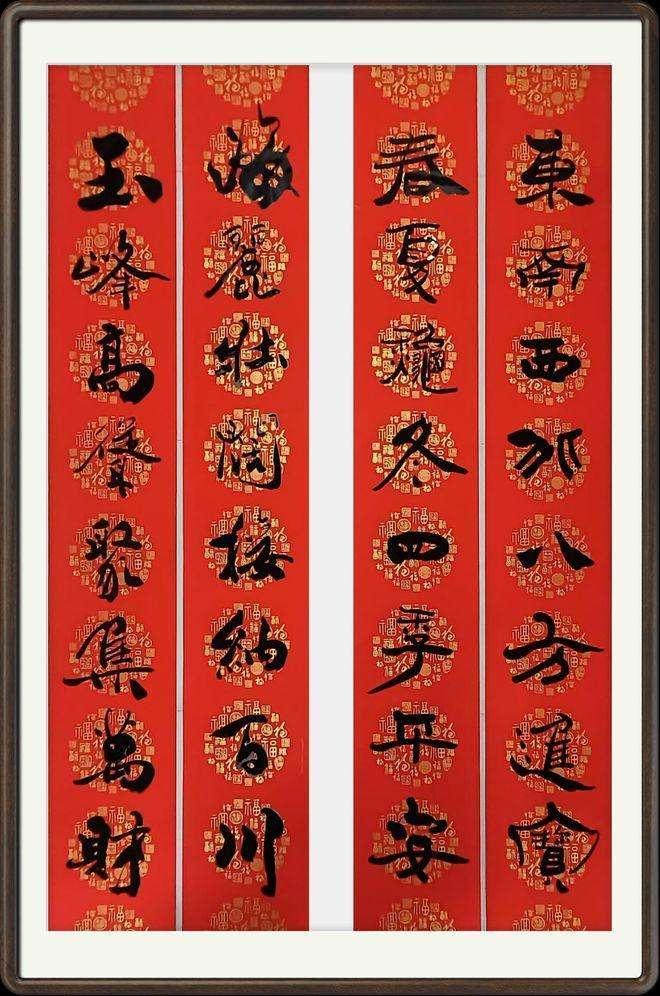 東南西北八方進寶
春夏龝冬四季平安
海麗壯闊接納百川
玉峰高聳聚集萬財